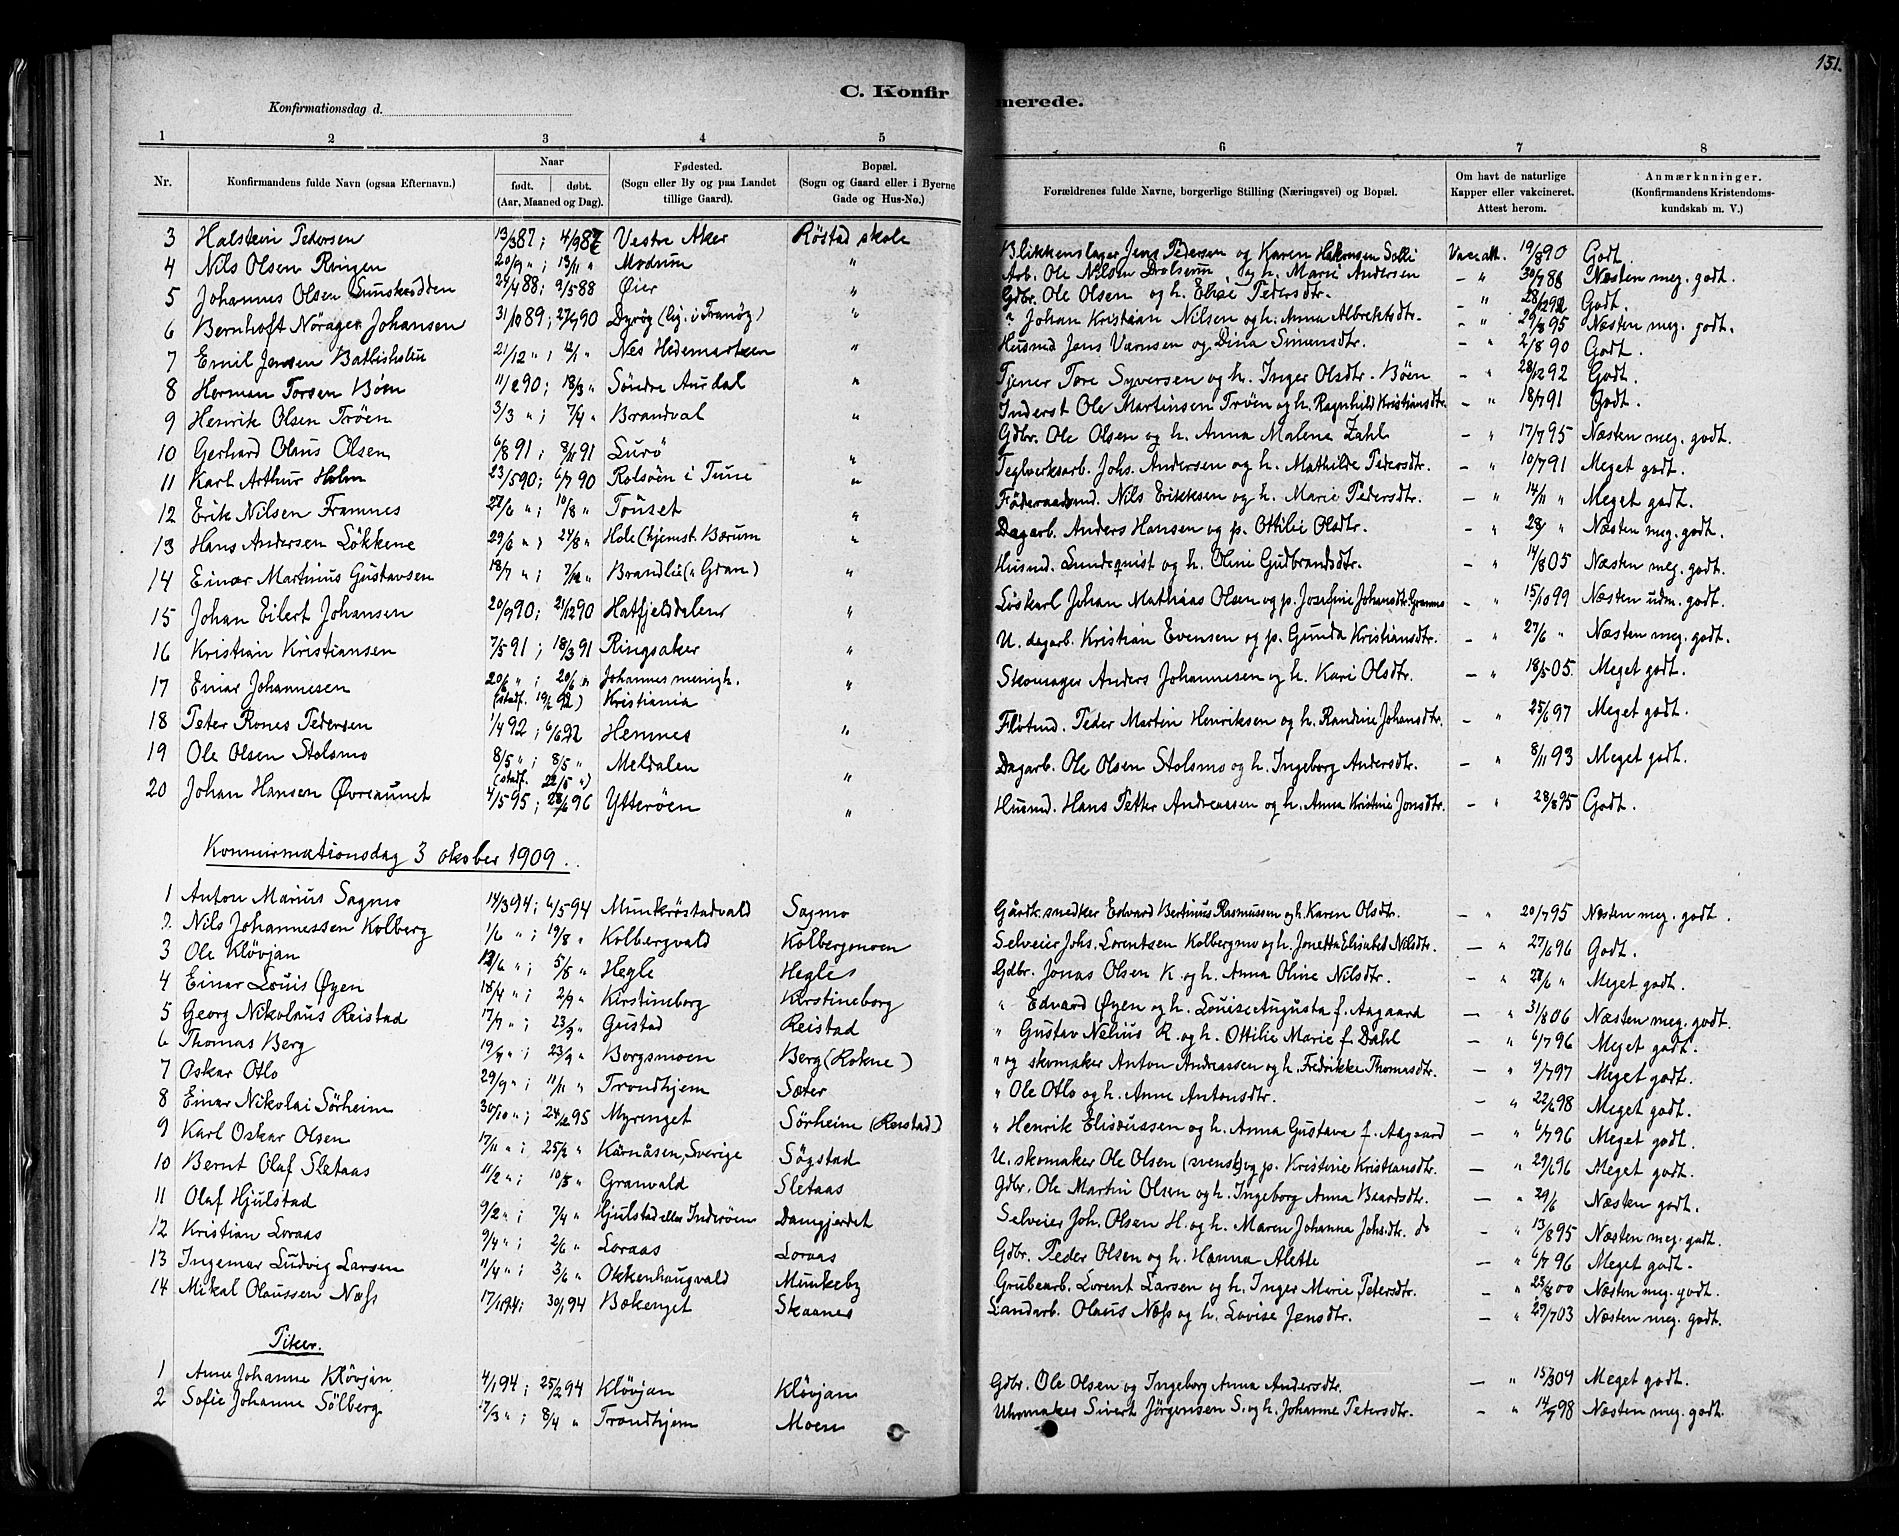 151.
C. Konfirmerede.
Konfirmationsdag d.
1 2 3 4 5 6 7 8
Nr. Konfirmandens fulde Navn (ogsaa Efternavn.) Naar født. døbt. (Aar, Maaned og Dag). Fødested. (Sogn eller By og paa Landet tillige Gaard). Bopæl. (Sogn og Gaard eller i Byerne Gade og Hus-No.) Forældrenes fulde Navne, borgerlige Stilling (Næringsvei) og Bopæl. Om havt de naturlige Kapper eller vakcineret. Attest herom. Anmærkninger. (Konfirmandens Kristendomskundskab m. V.)
3 Halstein Pedersen 13/3 87; 4/9 87 Vestre Aker Røstad skole Blikkenslager Jens Pedersen og Karen Hakonsen Solli Vac. att. 19/8 90 Godt.
4 Nils Olsen Ringen 20/9 "; 13/11 " Modum " Arb. Ole Nilsen Drolsum og h. Marie Andersen – " 30/7 88 Næsten meg. godt.
5 Johannes Olsen 24/4 88; 9/5 88 Øier " Gdbr. Ole Olsen og h. Elise Pedersdtr. – " Godt.
6 Bernhoft Nörager Johansen 31/10 89; 27/9 90 Dyrøy (hj. i Tranöy) " ? Johan Kristian Nilsen og h. Anna Albrektsdtr. – " 29/8 95 Næsten meg. godt.
7 Emil Jensen 21/12 "; 12/1 " Nes Hedemarken " Husmd Jens Varnsen og Dina Simensdtr. – " 2/8 90 Godt.
8 Herman Torsen Böen 11/2 90; 18/3 " Söndre Aurdal " Tjener Tore Syversen og h. Inger Olsdtr. Böen – " 28/12 92 Godt.
9 Henrik Olsen Tröen 3/3 "; 7/4 " Brandval " Inderst Ole Martinsen Tröen og h. Ragnhild Kristiansdtr. – " 18/7 91 Godt.
10 Gerhard Olaus Olsen 6/8 91; 8/11 91 Lurö " Gdbr. Ole Olsen og h. Anna Malena Zahl – " 17/7 95 Næsten meg. godt.
11 Karl Arthur Holm 23/5 90; 6/7 90 Rolsöen i Tune " Teglverksarb. Johs. Andersen og h. Mathilde Pedersdtr. – " 10/7 91 Meget godt.
12 Erik Nilsen Framnes 27/6 "; 10/8 " Tönset " Föderaadsmd. Nils Erikksen og h. Marie Pedersdtr. – " 14/11 " Meget godt.
13 Hans Andersen Lökkene 29/6 "; 24/8 " Hole (hjemst. Bærum " Dagarb. Anders Hansen og p. Ottilie Olsdtr. – " Næsten meg. godt.
14 Einar Martinius Gustavsen 18/7 "; 7/12 " Brandbu (" Gran) " Husmd. Lundequist og h. Oline Gudbrandsdtr. – " 14/8 05 Næsten meg. godt.
15 Johan Eilert Johansen 20/9 90; 21/12 90 Hatfjelddalen " Löskarl Johan Mathias Olsen og p. Josefine Johansdtr. – " 15/10 99 Næsten udm. godt.
16 Kristian Kristiansen 7/5 91; 18/3 91 Ringsaker " U. dagarb. Kristian Evensen og p. Gunda Kristiansdtr. – " 27/6 " Næsten meg. godt.
17 Einar Johannesen 20/6 "; 20/6 " (stadf. 19/2 92) Johannes menigh. Kristiania " Skomager Anders Johannesen og h. Kari Olsdtr. – " 18/5 05. Meget godt.
18 Peter Rones Pedersen 1/4 92; 6/6 92 Hemnes " Fløtmd. Peder Martin Henriksen og h. Randine Johansdtr. – " 25/6 97 Meget godt.
19 Ole Olsen Stolsmo 8/5 "; 8/5 " (stadf. 22/5 ") Meldalen " Dagarb. Ole Olsen Stolsmo og h. Ingeborg Andersdtr. – " 8/11 93 Meget godt.
20 Johan Hansen Øvreaunet 4/5 95; 28/6 96 Ytterøen " Husmd. Hans Petter Andreassen og h. Anna Kristine Jonsdtr. – " 28/8 95 Godt.
Konnfirmationsdag 3 oktober 1909.
1 Anton Marius Sagmo 14/3 94; 6/5 94 Munkröstadvald Sagmo Gårdt. snedker Edvard Bertinus Rasmussen og h. Karen Olsdtr. – " 20/7 95 Næsten meg. godt.
2. Nils Johannessen Kolberg 1/6 "; 19/8 " Kolbergvald Kolbergmoen Selveier Johs. Lorentsen Kolbergmo og h. Jonetta Elisabet Nilsdtr. – " 27/6 96 Godt.
3 Ole Klövjan 12/6 "; 5/8 " Hegle Hegles Gdbr. Jonas Olsen K. og h. Anna Oline Nilsdtr. – " 27/6 " Meget godt.
4 Einar Louis Øyen 18/4 "; 2/9 " Kirstineborg Kirstineborg " Edvard Øyen og h. Louise Augusta f. Aagaard – " 31/8 06 Næsten meg. godt.
5 Georg Nikolaus Reistad 17/7 "; 23/9 " Gustad Reistad " Gustav Nelius R. og h. Ottilie Marie f. Dahl – " 6/7 96 Meget godt.
6 Thomas Berg 19/9 "; 23/9 " Borgsmoen Berg (Rokne) " og skomaker Anton Andreassen og h. Fredrikke Thomasdtr. – " 9/7 97 Meget godt.
7 Oskar Otlo 29/9 "; 11/11 " Trondhjem Sæter " Ole Otlo og h. Anne Antonsdtr. – " 22/6 98 Meget godt.
8 Einar Nikolai Sörheim 30/10 "; 24/2 95 Myrenget Sörheim (Reistad) " Henrik Elisæussen og h. Anna Gustava f. Aagaard – " 6/7 96 Meget godt.
9 Karl Oskar Olsen 17/11 "; 25/2 " Kårnåsen, Sverige Søgstad U. skomaker Ole Olsen (svensk) og p. Kristine Kristiansdtr. – " 29/6 96 Meget godt.
10 Bernt Olaf Sletaas 11/2 "; 10/5 " Granvald Sletaas Gdbr. Ole Martin Olsen og h. Ingeborg Anna Baardsdtr. – " 29/6 Næsten godt.
11 Olaf Hjulstad 9/2 "; 7/4 " Hjulstad eller Inderøen Damgjerdet Selveier Joh. Olsen H. og h. Maren Johanna Johsdtr. do – " 13/8 95 Næsten meg. godt.
12 Kristian Loraas 9/4 "; 2/6 " Loraas Loraas Gdbr. Peder Olsen og h. Hanna Alette – " 6/7 96 Meget godt.
13 Ingemar Ludvig Larsen 11/4 "; 3/6 " Okkenhaugvald Munkeby Grubearb. Lorent Larsen og h. Inger Marie Petersdtr. " 23/8 00 Næsten meg. godt.
14 Mikal Olaussen Næss 17/11 94; 30/ 94 Bakenget Skaanes Landarb. Olaus Næss og h. Lovise Jensdtr. – " 29/7 03 Næsten meg. godt.
Piker.
1 Anne Johanne Klövjan 4/1 94; 25/2 94 Klövjan Klövjan Gdbr. Ole Olsen og Ingeborg Anna Andersdtr. – " 15/3 09 Meget godt.
2 Sofie Johanne Sölberg 17/3 "; 8/4 " Trondhjem Moen Uhrmaker Sivert Jörgensen S. og h. Johanne Petersdtr. – " 14/9 98 Næsten meg. godt.